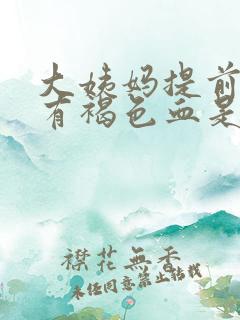 大姨妈提前
有褐色血是
襟花無香
未经同意禁止转载